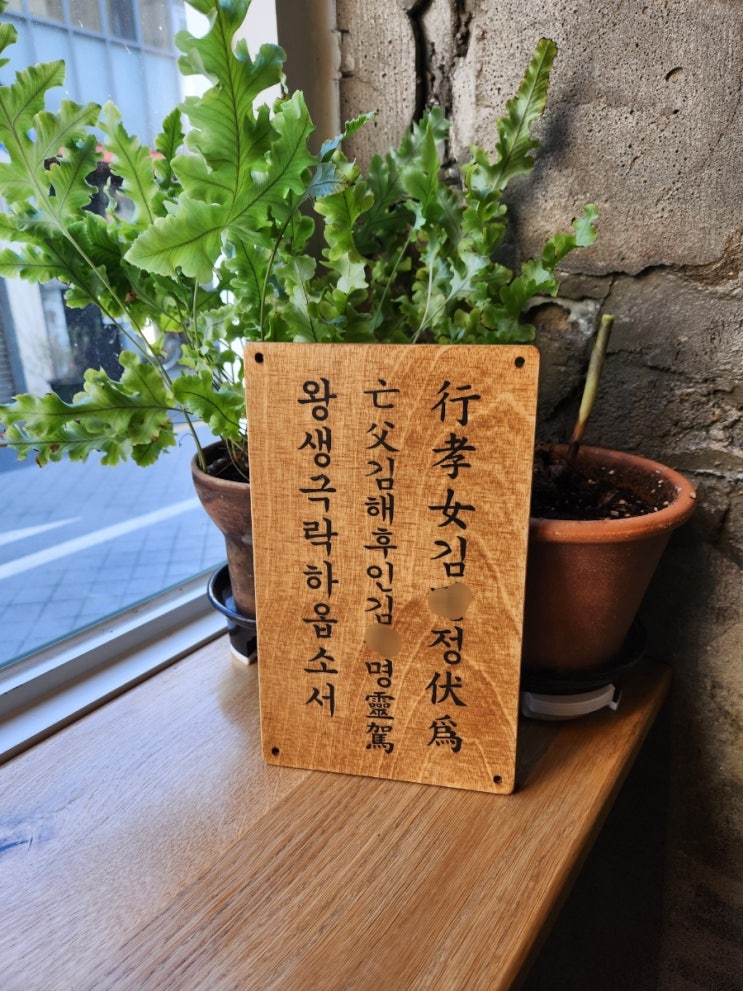 行孝女김 정伏爲
亡父김해후인김 명靈駕
왕생극락하옵소서